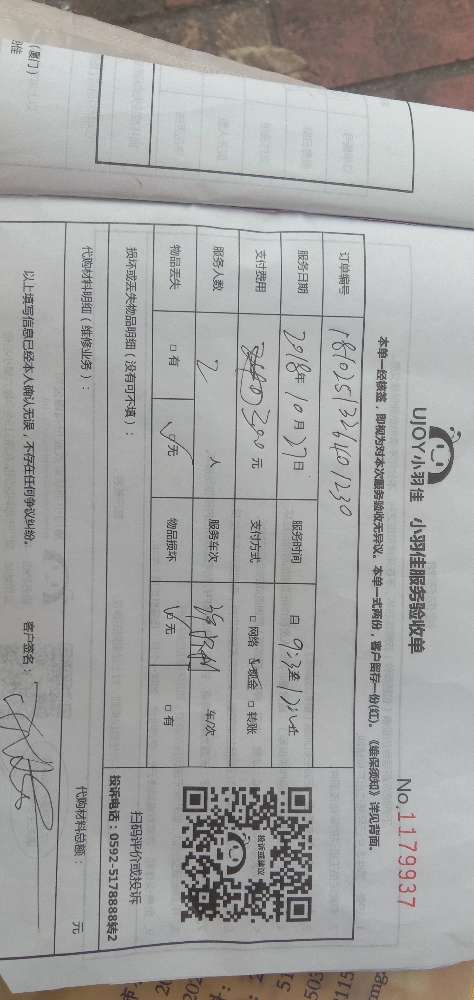 UJOY小羽佳 小羽佳服务验收单
No.1179937
本单一经核签，即视为对本次服务验收无异议。本单一式两份，客户留存一份(红)。《维保须知》详见背面。
订单编号 1810251326401230
服务日期 2018年10月27日 服务时间 日
支付费用 2300元 支付方式 □网络 ☑现金 □转账
服务人数 2人 服务车次 车/次
物品丢失 □有 ☑无 物品损坏 ☑无 □有
投诉或建议
扫码评价或投诉
投诉电话：0592-5178888转2
损坏或丢失物品明细（没有可不填）：
代购材料明细（维修业务）： 代购材料总额： 元
以上填写信息已经本人确认无误，不存在任何争议纠纷。 客户签名：
(厦门)